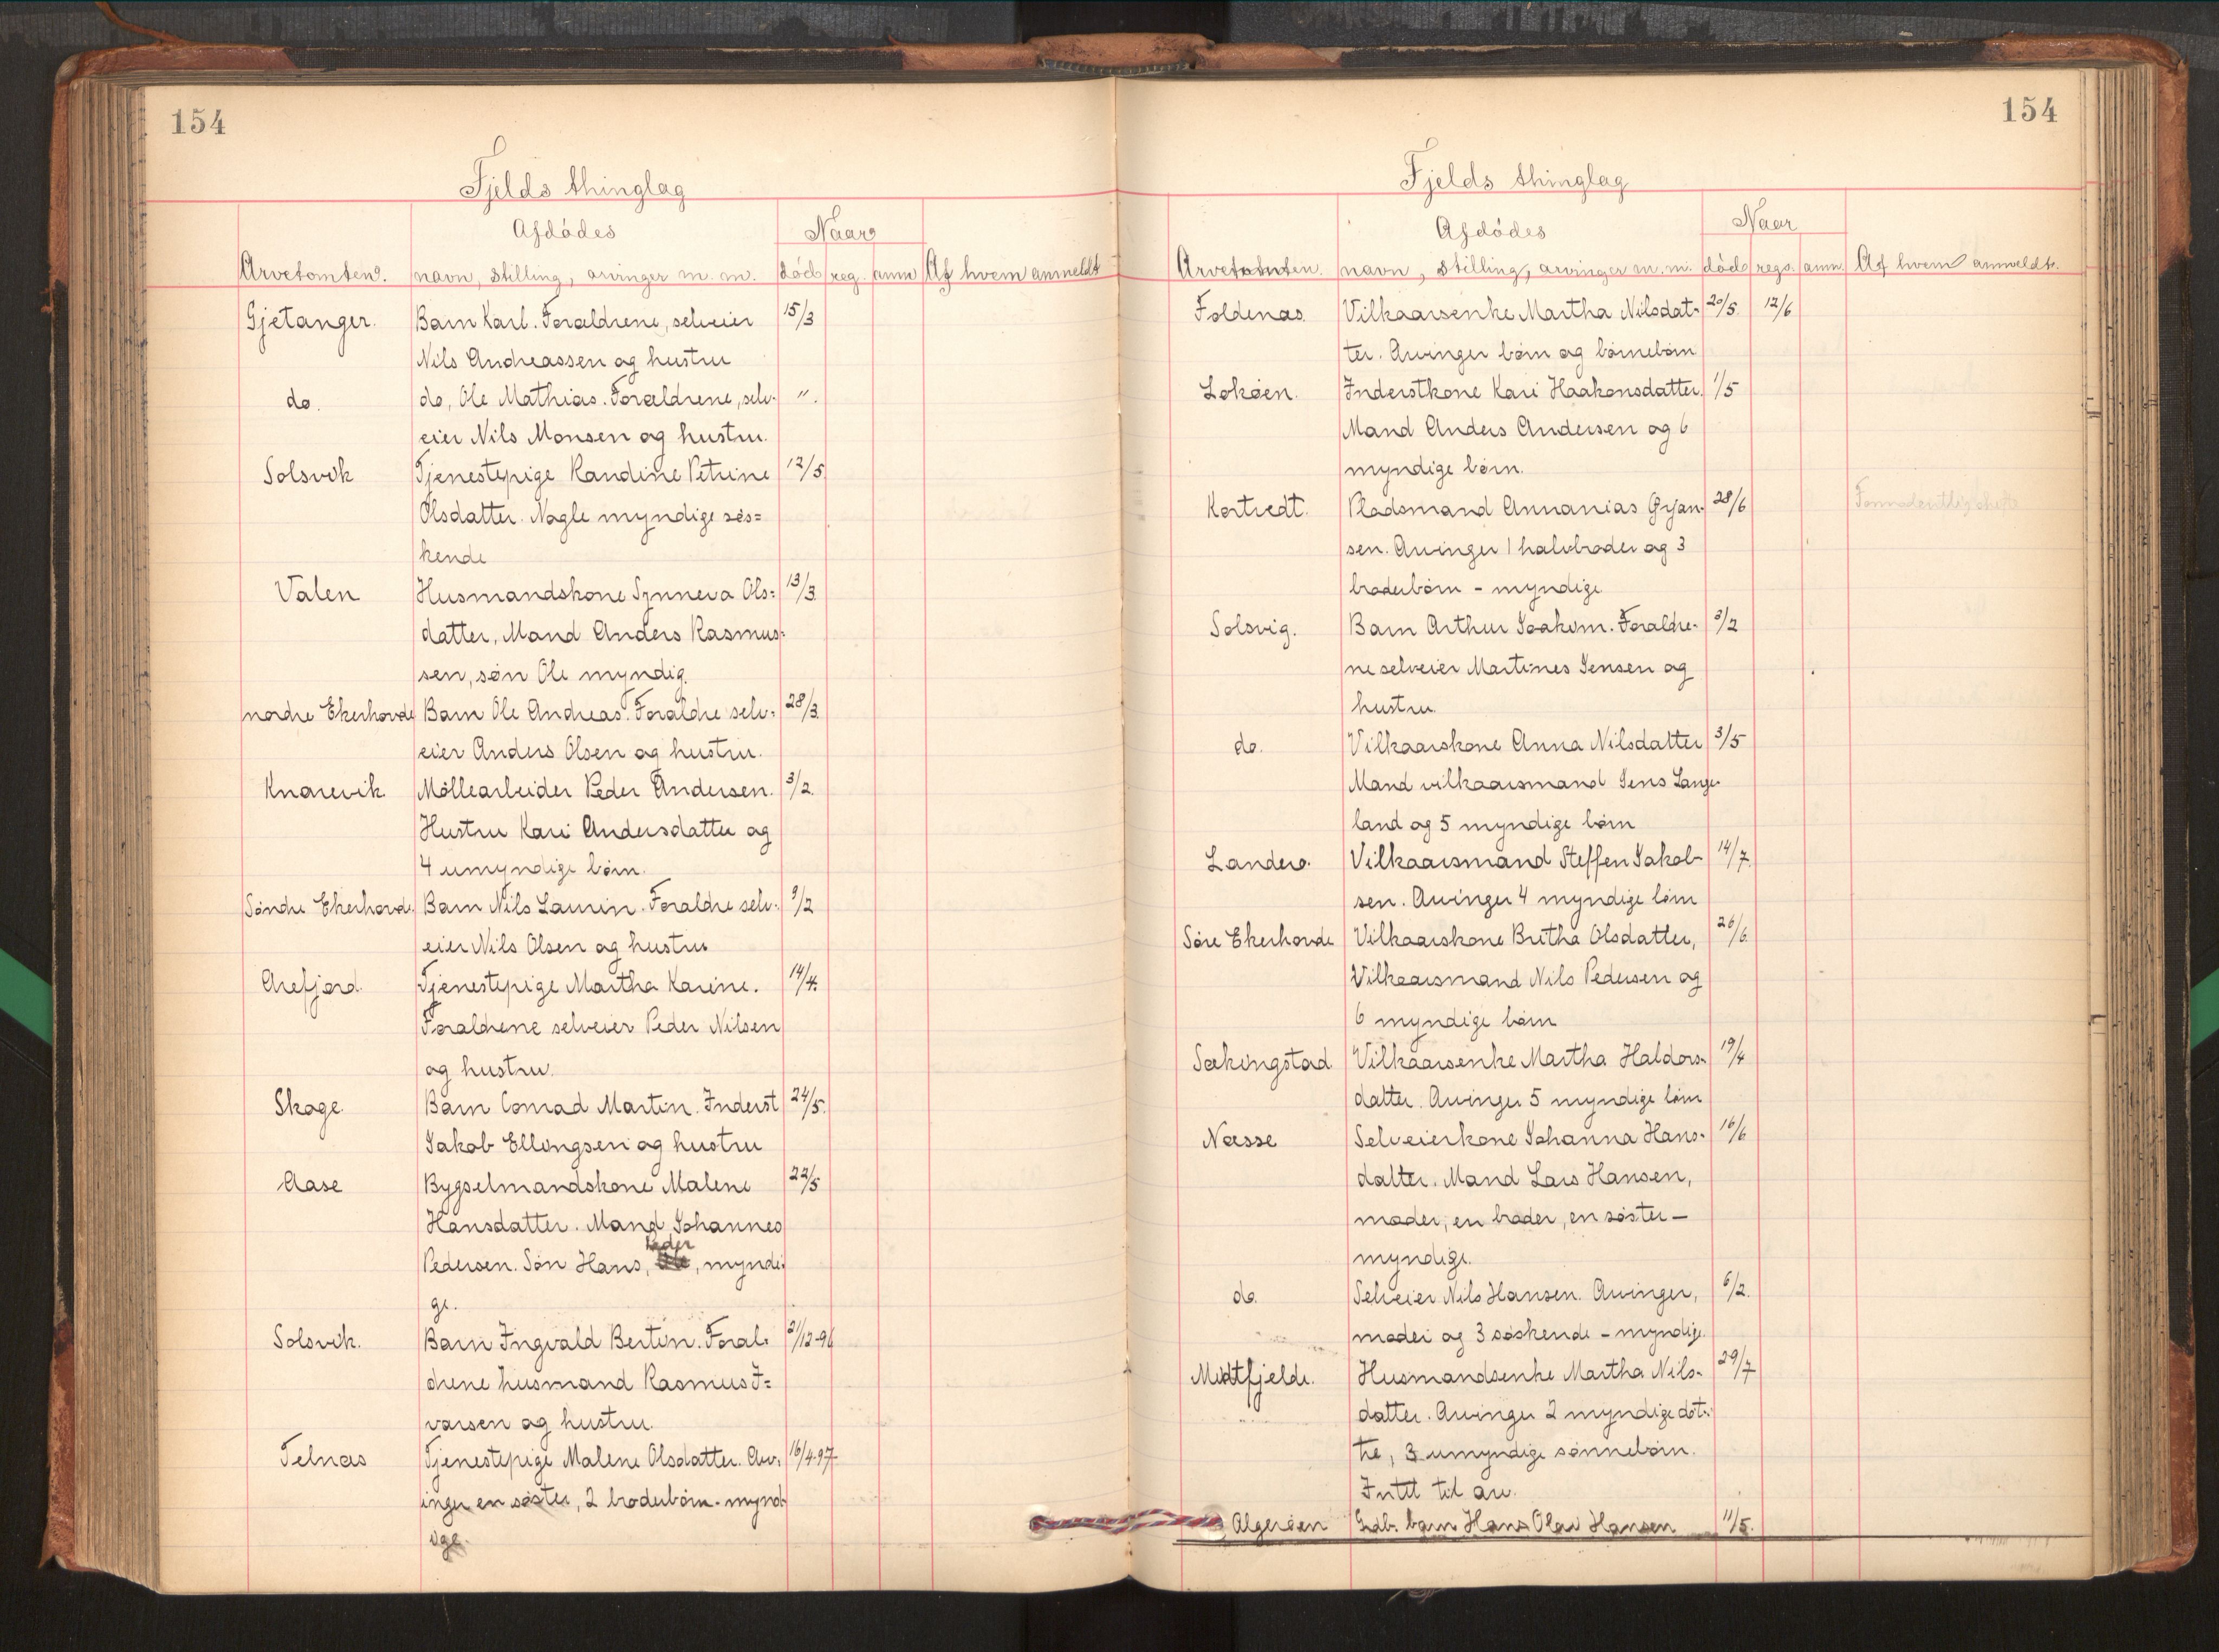 154
Fjelds thinglag
Afdödes
Naar
Arvetomten. navn, stilling, arvinger m. m. död reg. anm Af hvem anmeldt
Gjetanger. Barn Karl. Forældrene, selveier 15/3
Nils Andreassen og hustru
do. do, Ole Mathias. Forældrene, selv- ".
eier Nils Monsen og hustru.
Solsvik Tjenestepige Randine Petrine 12/5
Olsdatter. Nogle myndige søs=
kende
Valen Husmandskone Synneva Ols= 13/3.
datter, Mand Anders Rasmus=
sen, søn Ole myndig.
nordre Ekerhovde Barn Ole Andreas. Foraldre selv= 28/3.
eier Anders Olsen og hustru.
Knarevik. Möllearbeider Peder Andersen. 3/2.
Hustru Kari Andersdatter og
4 umyndige børn.
Söndre Ekerhovde. Barn Nils Laurin. Foraldre selv- 9/2
eier Nils Olsen og hustru
Arefjord. Tjenestepige Martha Karine. 14/4.
Foraldrene selveier Peder Nilsen
og hustru.
Skoge. Barn Conrad Martin. Inderst 24/5.
Jakob Ellingsen og hustru
Aase Bygselmandskone Malene 22/5
Hansdatter. Mand Johannes
Peder
Pedersen. Søn Hans, , myndi-
ge.
Solsvik. Barn Ingvald Bertin. Foral- 21/12-96
drene husmand Rasmus I=
varsen og hustru.
Telnæs Tjenestepige Malene Olsdatter. Arv- 16/4-97
inger en søster, 2 broderbörn - mynd-
ige.
154
Fjelds thinglag
Afdödes
Naar
Arvetomten. navn, stilling, arvinger m. m. död regs. anm. Af hvem anmeldt.
Foldenas. Vilkaarsenke Martha Nilsdat- 20/5. 12/6
ter. Arvinger børn og børnebørn
Lokøen. Inderstkone Kari Haakonsdatter. 1/5
Mand Anders Andersen og 6
myndige børn.
Kortvedt. Pladsmand Annanias Ørjan- 28/6
sen. Arvinger 1 halvbroder og 3
broderbörn - myndige
Solsvig. Barn Arthur Joakim. Foraldre- 3/2
ne selveier Martines Jensen og
hustru.
do. Vilkaarskone Anna Nilsdatter 3/5
Mand vilkaarsmand Jens Lange-
land og 5 myndige børn
Landerø. Vilkaarsmand Steffen Jakob- 14/7.
sen. Arvinger 4 myndige børn
Søre Ekerhovde Vilkaarskone Britha Olsdatter, 26/6.
Vilkaarsmand Nils Pedersen og
6 myndige børn
Sækingstad Vilkaarsenke Martha Haldors- 19/4
datter. Arvinger 5 myndige børn
Næsse Selveierkone Johanna Hans- 16/6
datter. Mand Lars Hansen,
moder, en broder, en søster -
myndige.
do. Selveier Nils Hansen. Arvinger, 6/2.
moder og 3 søskende - myndige.
Midtfjelde. Husmandsenke Martha Nils- 29/7
datter. Arvinger 2 myndige døt-
tre, 3 umyndige sønnebørn.
Intet til arv.
Algerøen Indb. barn Hans Olai Hansen 11/5.